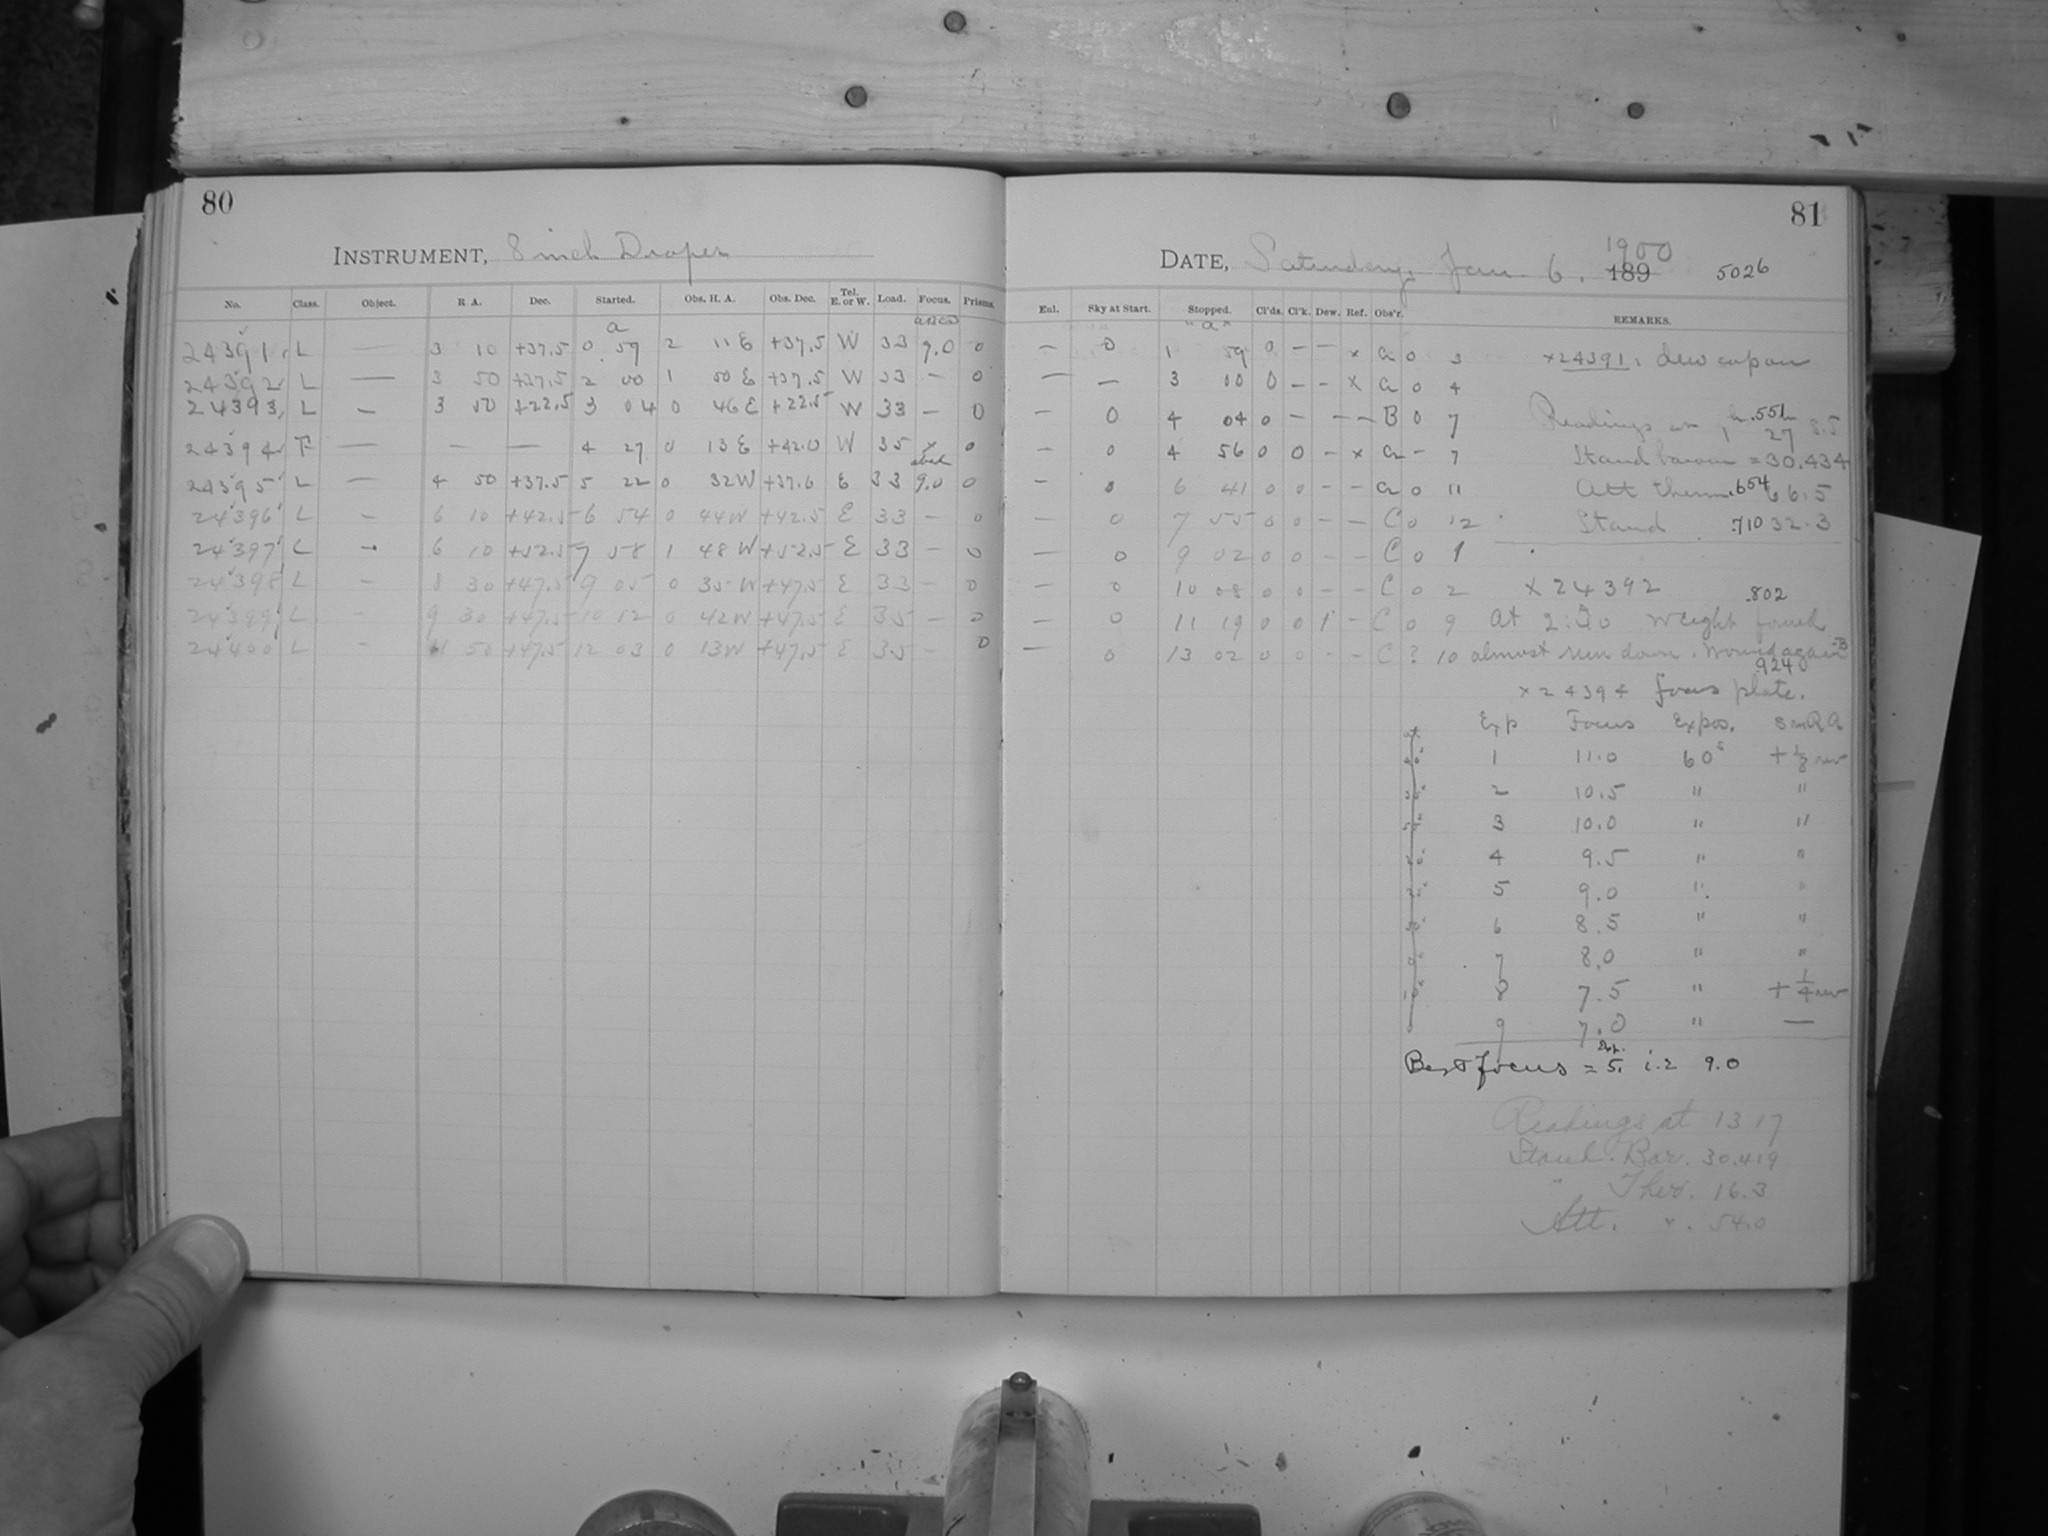 80
INSTRUMENT, 8 inch Draper
No. Class. Object. R A. Dec. Started. Obs. H. A. Obs. Dec. Tel. E. or W. Load. Focus. Prisms.
a
24391 L — 3 10 +37.5 0 59 2 11 E +37.5 W 33 9.0 0
24392 L — 3 50 +37.5 2 00 1 50 E +37.5 W 33 — 0
24393 L — 3 50 +22.5 3 04 0 46 E +22.5 W 33 — 0
24394 F — — — 4 27 0 13 E +42.0 W 35 x 0
24395 L — 4 50 +37.5 5 22 0 32 W +37.6 E 33 9.0 0
24396 L — 6 10 +42.5 6 54 0 44 W +42.5 E 33 — 0
24397 L — 6 10 +52.5 7 58 1 48 W +52.5 E 33 — 0
24398 L — 8 30 +47.5 9 05 0 35 W +47.5 E 33 — 0
24399 L — 9 30 +47.5 10 12 0 42 W +47.5 E 35 — 0
24400 L — 11 50 +47.5 12 03 0 13 W +47.5 E 35 — 0
81
DATE, Saturday, Jan. 6. 1900 189 5026
Enl. Sky at Start. Stopped. Cl'ds. Cl'k. Dew. Ref. Obs'r. REMARKS.
"a"
— 0 1 59 0 — — x a 0 3 x 24391. dew cap on
— — 3 00 0 — — x a 0 4
— 0 4 04 0 — — — B 0 7 Readings at 1 27 .551
— 0 4 56 0 0 — x a — 7 Stand barom = 30.434
— 0 6 41 0 0 — — a 0 11 Att therm .654 66.5
— 0 7 55 0 0 — — C 0 12 Stand .710 32.3
— 0 9 02 0 0 — — C 0 1
— 0 10 08 0 0 — — C 0 2 x 24392 .802
— 0 11 19 0 0 1 — C 0 9 At 2:20 weight found
— 0 13 02 0 0 — — C ? 10 almost run down. Wound again —B
.924
x 24394 focus plate.
Exp Focus Expos. S m R A
1 11.0 60s + 1/8 rev
2 10.5 " "
3 10.0 " "
4 9.5 " "
5 9.0 " "
6 8.5 " "
7 8.0 " "
8 7.5 " + 1/4 rev
9 7.0 " —
Best focus = Exp. 5. i.e 9.0
Readings at 13 17
Stand. Bar. 30.419
" Ther. 16.3
Att. ". 54.0